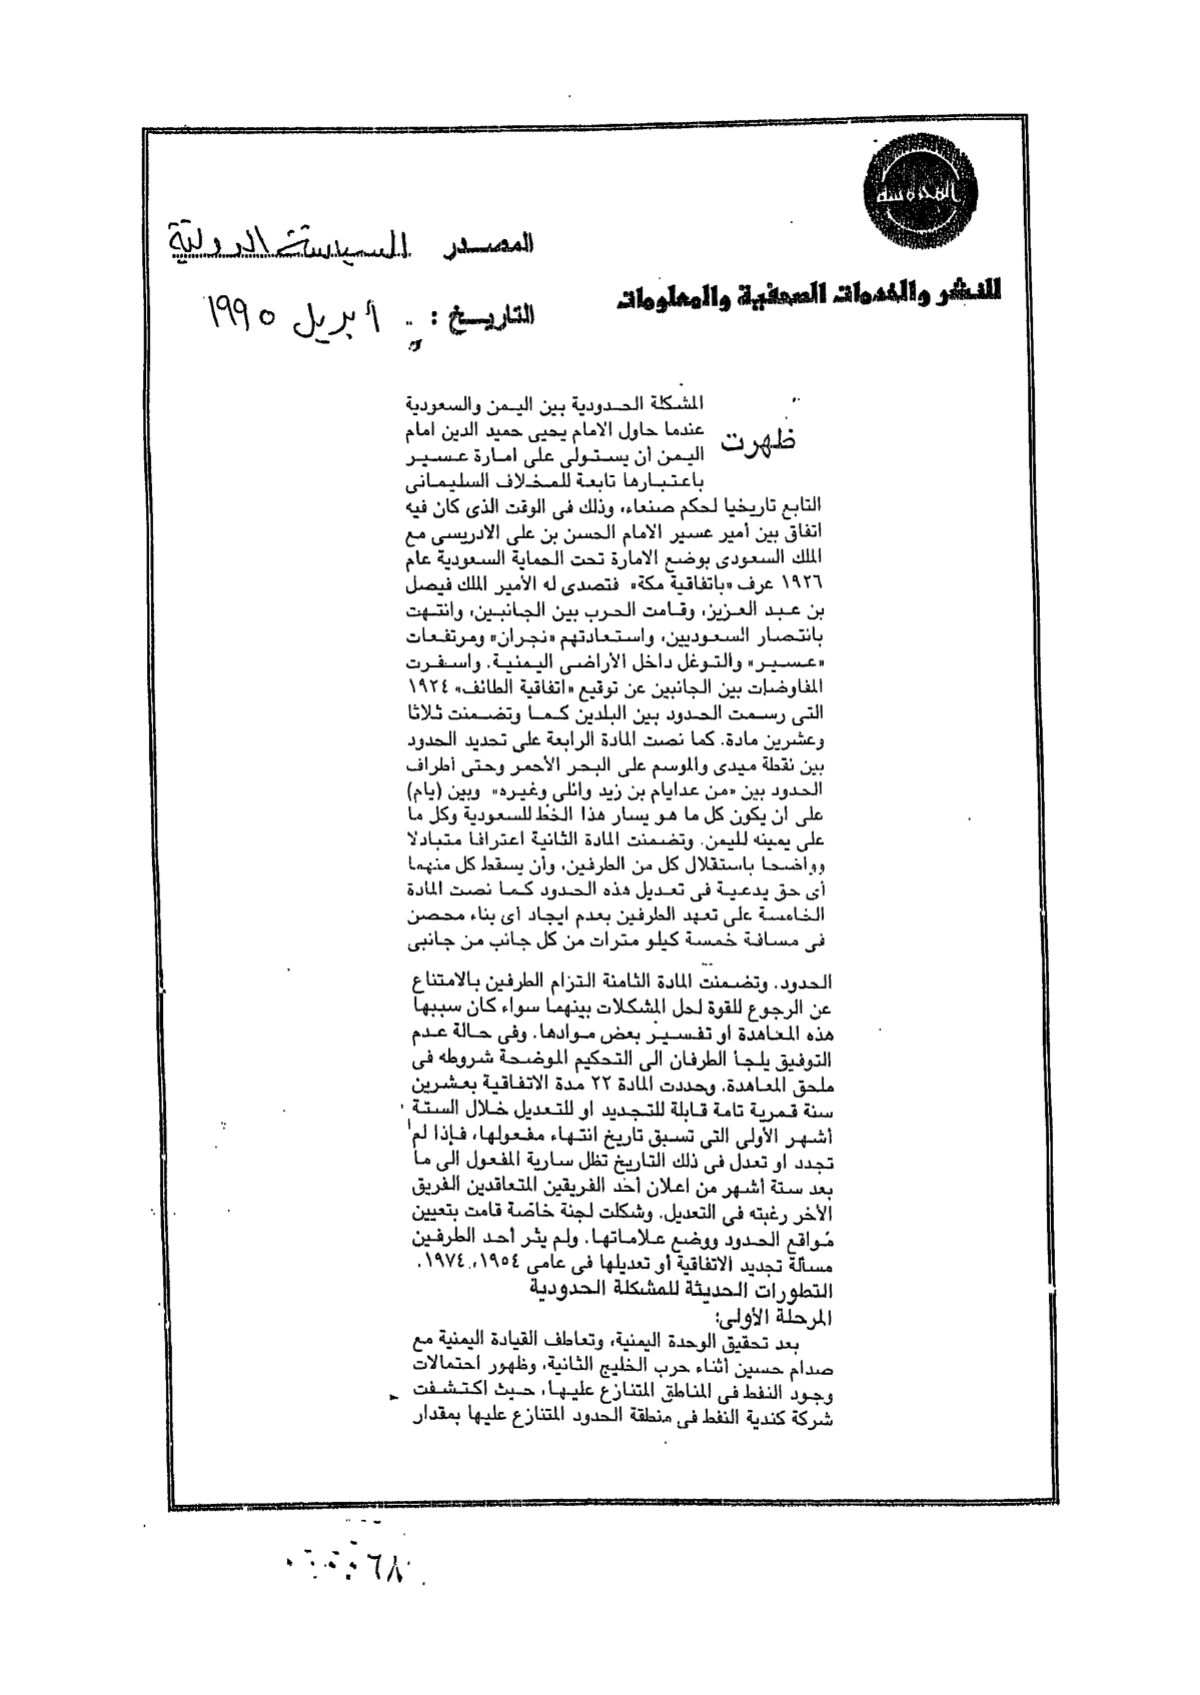 المحروسة
للنشر والخدمات الصحفية والمعلومات
المصدر السياسة الدولية
التاريخ : أبريل ١٩٩٥
ظهرت
المشكلة الحدودية بين اليمن والسعودية
عندما حاول الامام يحيى حميد الدين امام
اليمن أن يستولى على امارة عسير
باعتبارها تابعة للمخلاف السليمانى
التابع تاريخيا لحكم صنعاء، وذلك فى الوقت الذى كان فيه
اتفاق بين أمير عسير الامام الحسن بن على الادريسى مع
الملك السعودى بوضع الامارة تحت الحماية السعودية عام
١٩٢٦ عرف «باتفاقية مكة» فتصدى له الأمير الملك فيصل
بن عبد العزيز، وقامت الحرب بين الجانبين، وانتهت
بانتصار السعوديين، واستعادتهم «نجران» ومرتفعات
«عسير» والتوغل داخل الأراضى اليمنية. واسفرت
المفاوضات بين الجانبين عن توقيع «اتفاقية الطائف» ١٩٣٤
التى رسمت الحدود بين البلدين كما وتضمنت ثلاثا
وعشرين مادة. كما نصت المادة الرابعة على تحديد الحدود
بين نقطة ميدى والموسم على البحر الأحمر وحتى أطراف
الحدود بين «من عدايام بن زيد وائلى وغيره» وبين (يام)
على ان يكون كل ما هو يسار هذا الخط للسعودية وكل ما
على يمينه لليمن. وتضمنت المادة الثانية اعترافا متبادلا
وواضحا باستقلال كل من الطرفين، وأن يسقط كل منهما
أى حق يدعية فى تعديل هذه الحدود كما نصت المادة
الخامسة على تعهد الطرفين بعدم ايجاد أى بناء محصن
فى مسافة خمسة كيلو مترات من كل جانب من جانبى
الحدود. وتضمنت المادة الثامنة التزام الطرفين بالامتناع
عن الرجوع للقوة لحل المشكلات بينهما سواء كان سببها
هذه المعاهدة او تفسير بعض موادها. وفى حالة عدم
التوفيق يلجأ الطرفان الى التحكيم الموضحة شروطه فى
ملحق المعاهدة. وحددت المادة ٢٢ مدة الاتفاقية بعشرين
سنة قمرية تامة قابلة للتجديد او للتعديل خلال الستة
أشهر الأولى التى تسبق تاريخ انتهاء مفعولها، فإذا لم
تجدد او تعدل فى ذلك التاريخ تظل سارية المفعول الى ما
بعد ستة أشهر من اعلان أحد الفريقين المتعاقدين الفريق
الأخر رغبته فى التعديل. وشكلت لجنة خاصة قامت بتعيين
مواقع الحدود ووضع علاماتها. ولم يثر أحد الطرفين
مسألة تجديد الاتفاقية أو تعديلها فى عامى ١٩٥٤، ١٩٧٤.
التطورات الحديثة للمشكلة الحدودية
المرحلة الأولى:
بعد تحقيق الوحدة اليمنية، وتعاطف القيادة اليمنية مع
صدام حسين أثناء حرب الخليج الثانية، وظهور احتمالات
وجود النفط فى المناطق المتنازع عليها، حيث اكتشفت
شركة كندية النفط فى منطقة الحدود المتنازع عليها بمقدار
٦٨